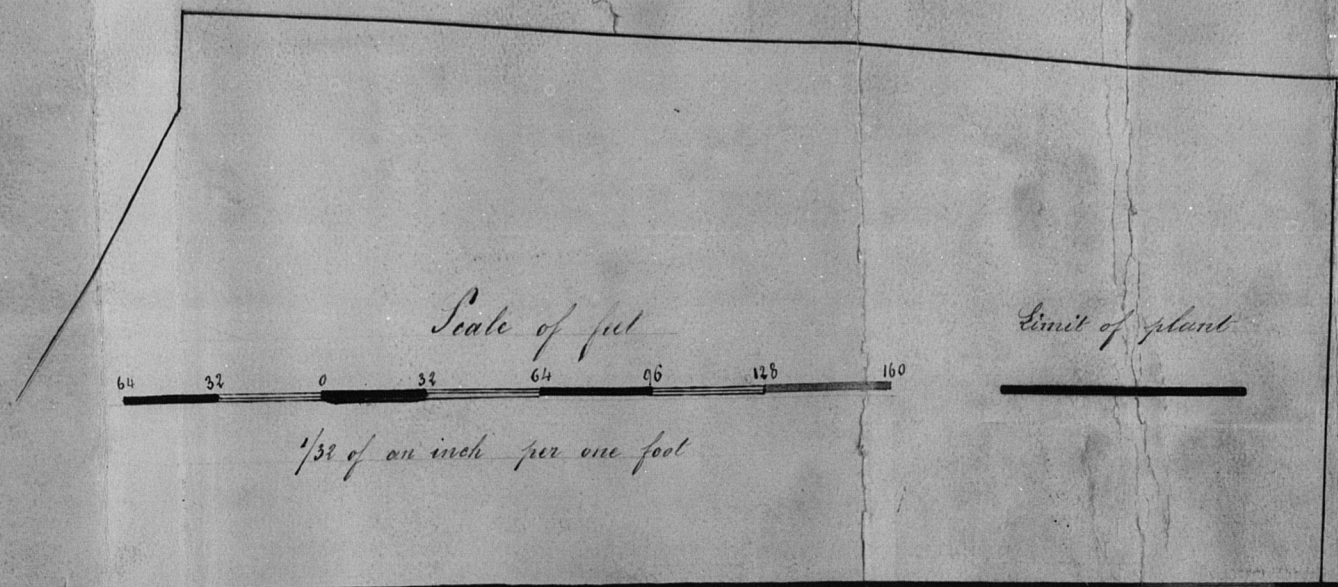 Scale of feet
64 32 0 32 64 96 128 160
1/32 of an inch per one foot
Limit of plant